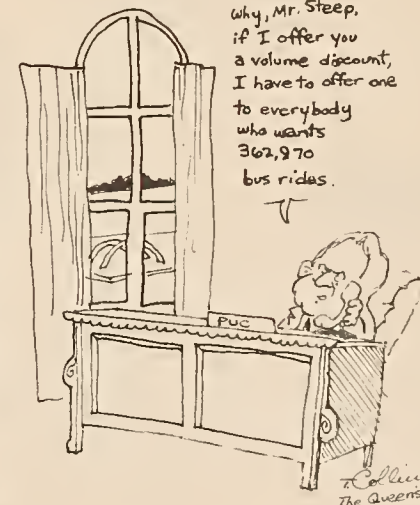 Why, Mr. Steep,
if I offer you
a volume discount,
I have to offer one
to everybody
who wants
362,870
bus rides.
PUC
T. Collin
The Queen's